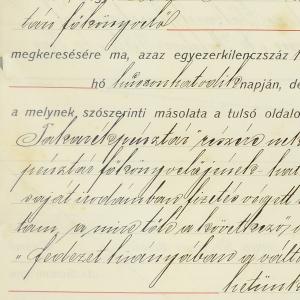 tári főkönyvelő
megkeresésére ma, azaz egyezerkilenczszáz
hó huszonhatodik napján, de
a melynek szószerinti másolata a tulsó oldalo
Takarékpénztár részére
pénztár főkönyvelőjének
saját irodámban fizetés végett
tam, a mire tőle a következő
"fedezet hiányában a vált
hetünk